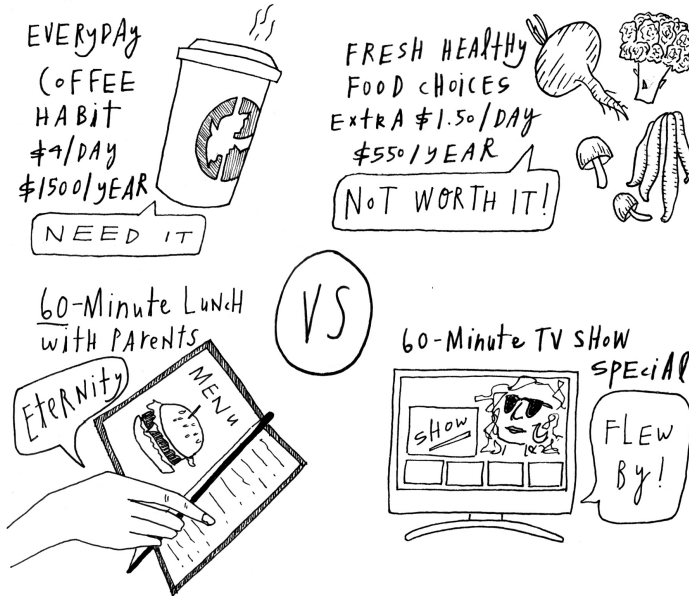 EVERYDAY
COFFEE
HABIT
$4/DAY
$1500/YEAR
NEED IT
FRESH HEALTHY
FOOD CHOICES
EXTRA $1.50/DAY
$550/YEAR
NOT WORTH IT!
VS
60-Minute LUNCH
with PARENTS
ETERNITY
MENU
60-Minute TV SHOW
SPECIAL
SHOW
FLEW
BY!